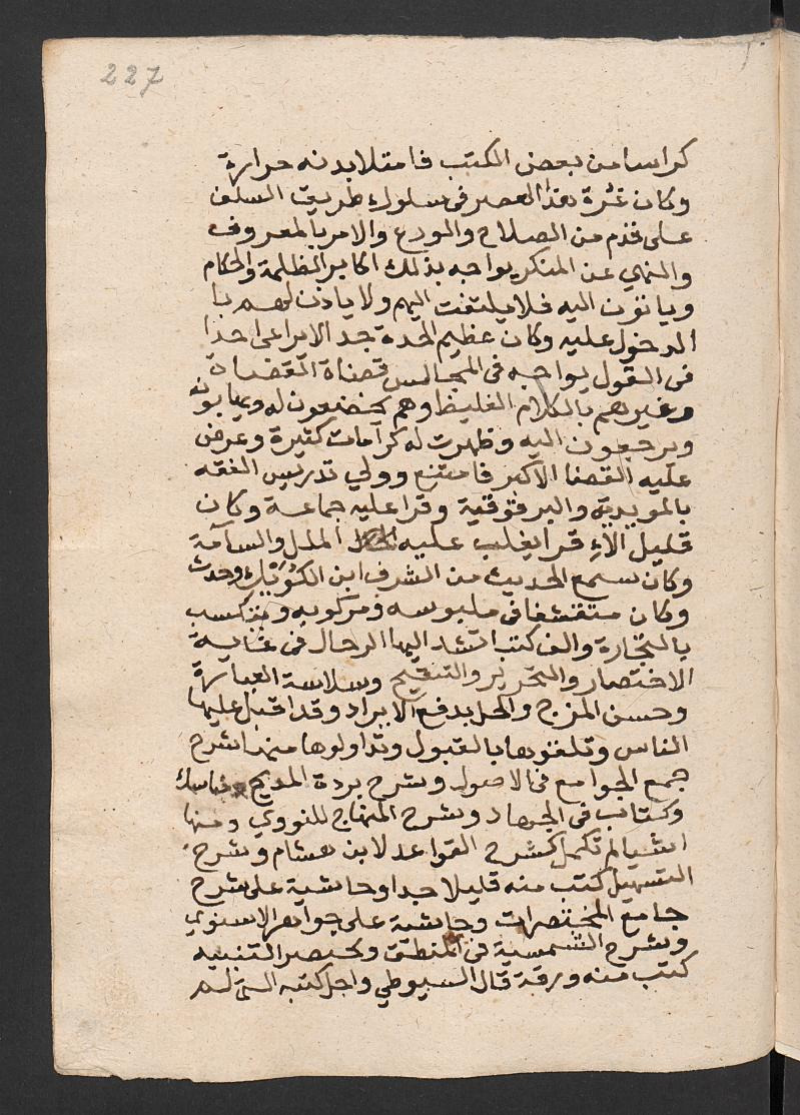 227
كراسا من بعض الكتب فامتلا بدنه حرارة
وكان غرة هذا العصر فى سلوك طريق السلف
على قدم من الصلاح والورع والامر بالمعروف
والنهي عن المنكر يواجه بذلك اكابر الظلمة والحكام
وياتون اليه فلا يلتفت اليهم ولا ياذن لهم با
الدخول عليه وكان عظيم الحدة جدا لايراعى احدا
فى القول يواجه فى المجالس قضاة القضاة
وغيرهم بالكلام الغليظ وهم يخضعون له ويهابونه
ويرجعون اليه وظهرت له كرامات كثيرة وعرض
عليه القضا الاكبر فامتنع وولي تدريس الفقه
بالمويدية والبرقوقية وقرا عليه جماعة وكان
قليل الاقرا يغلب عليه الملل والسآمة
وكان سمع الحديث من الشرف ابن الكويك وحدث
وكان متقشفا فى ملبوسه ومركوبه ويتكسب
بالتجارة والف كتبا تشد اليها الرحال فى غاية
الاختصار والتحرير والتنقيح وسلاسة العبارة
وحسن المزج والحل بدفع الايراد وقد اقبل عليها
الناس وتلقوها بالقبول وتداولوها منها شرح
جمع الجوامع فى الاصول وشرح بردة المديح ومناسك
وكتاب فى الجهاد وشرح المنهاج للنووي ومنها
اشيا لم تكمل كشرح القواعد لابن هشام وشرح
التسهيل كتب منه قليلا جدا وحاشية على شرح
جامع المختصرات وحاشية على جواهر الاسنوي
وشرح الشمسية فى المنطق ومختصر التنبيه
كتب منه ورقة قال السيوطي واجل كتبه التى لم